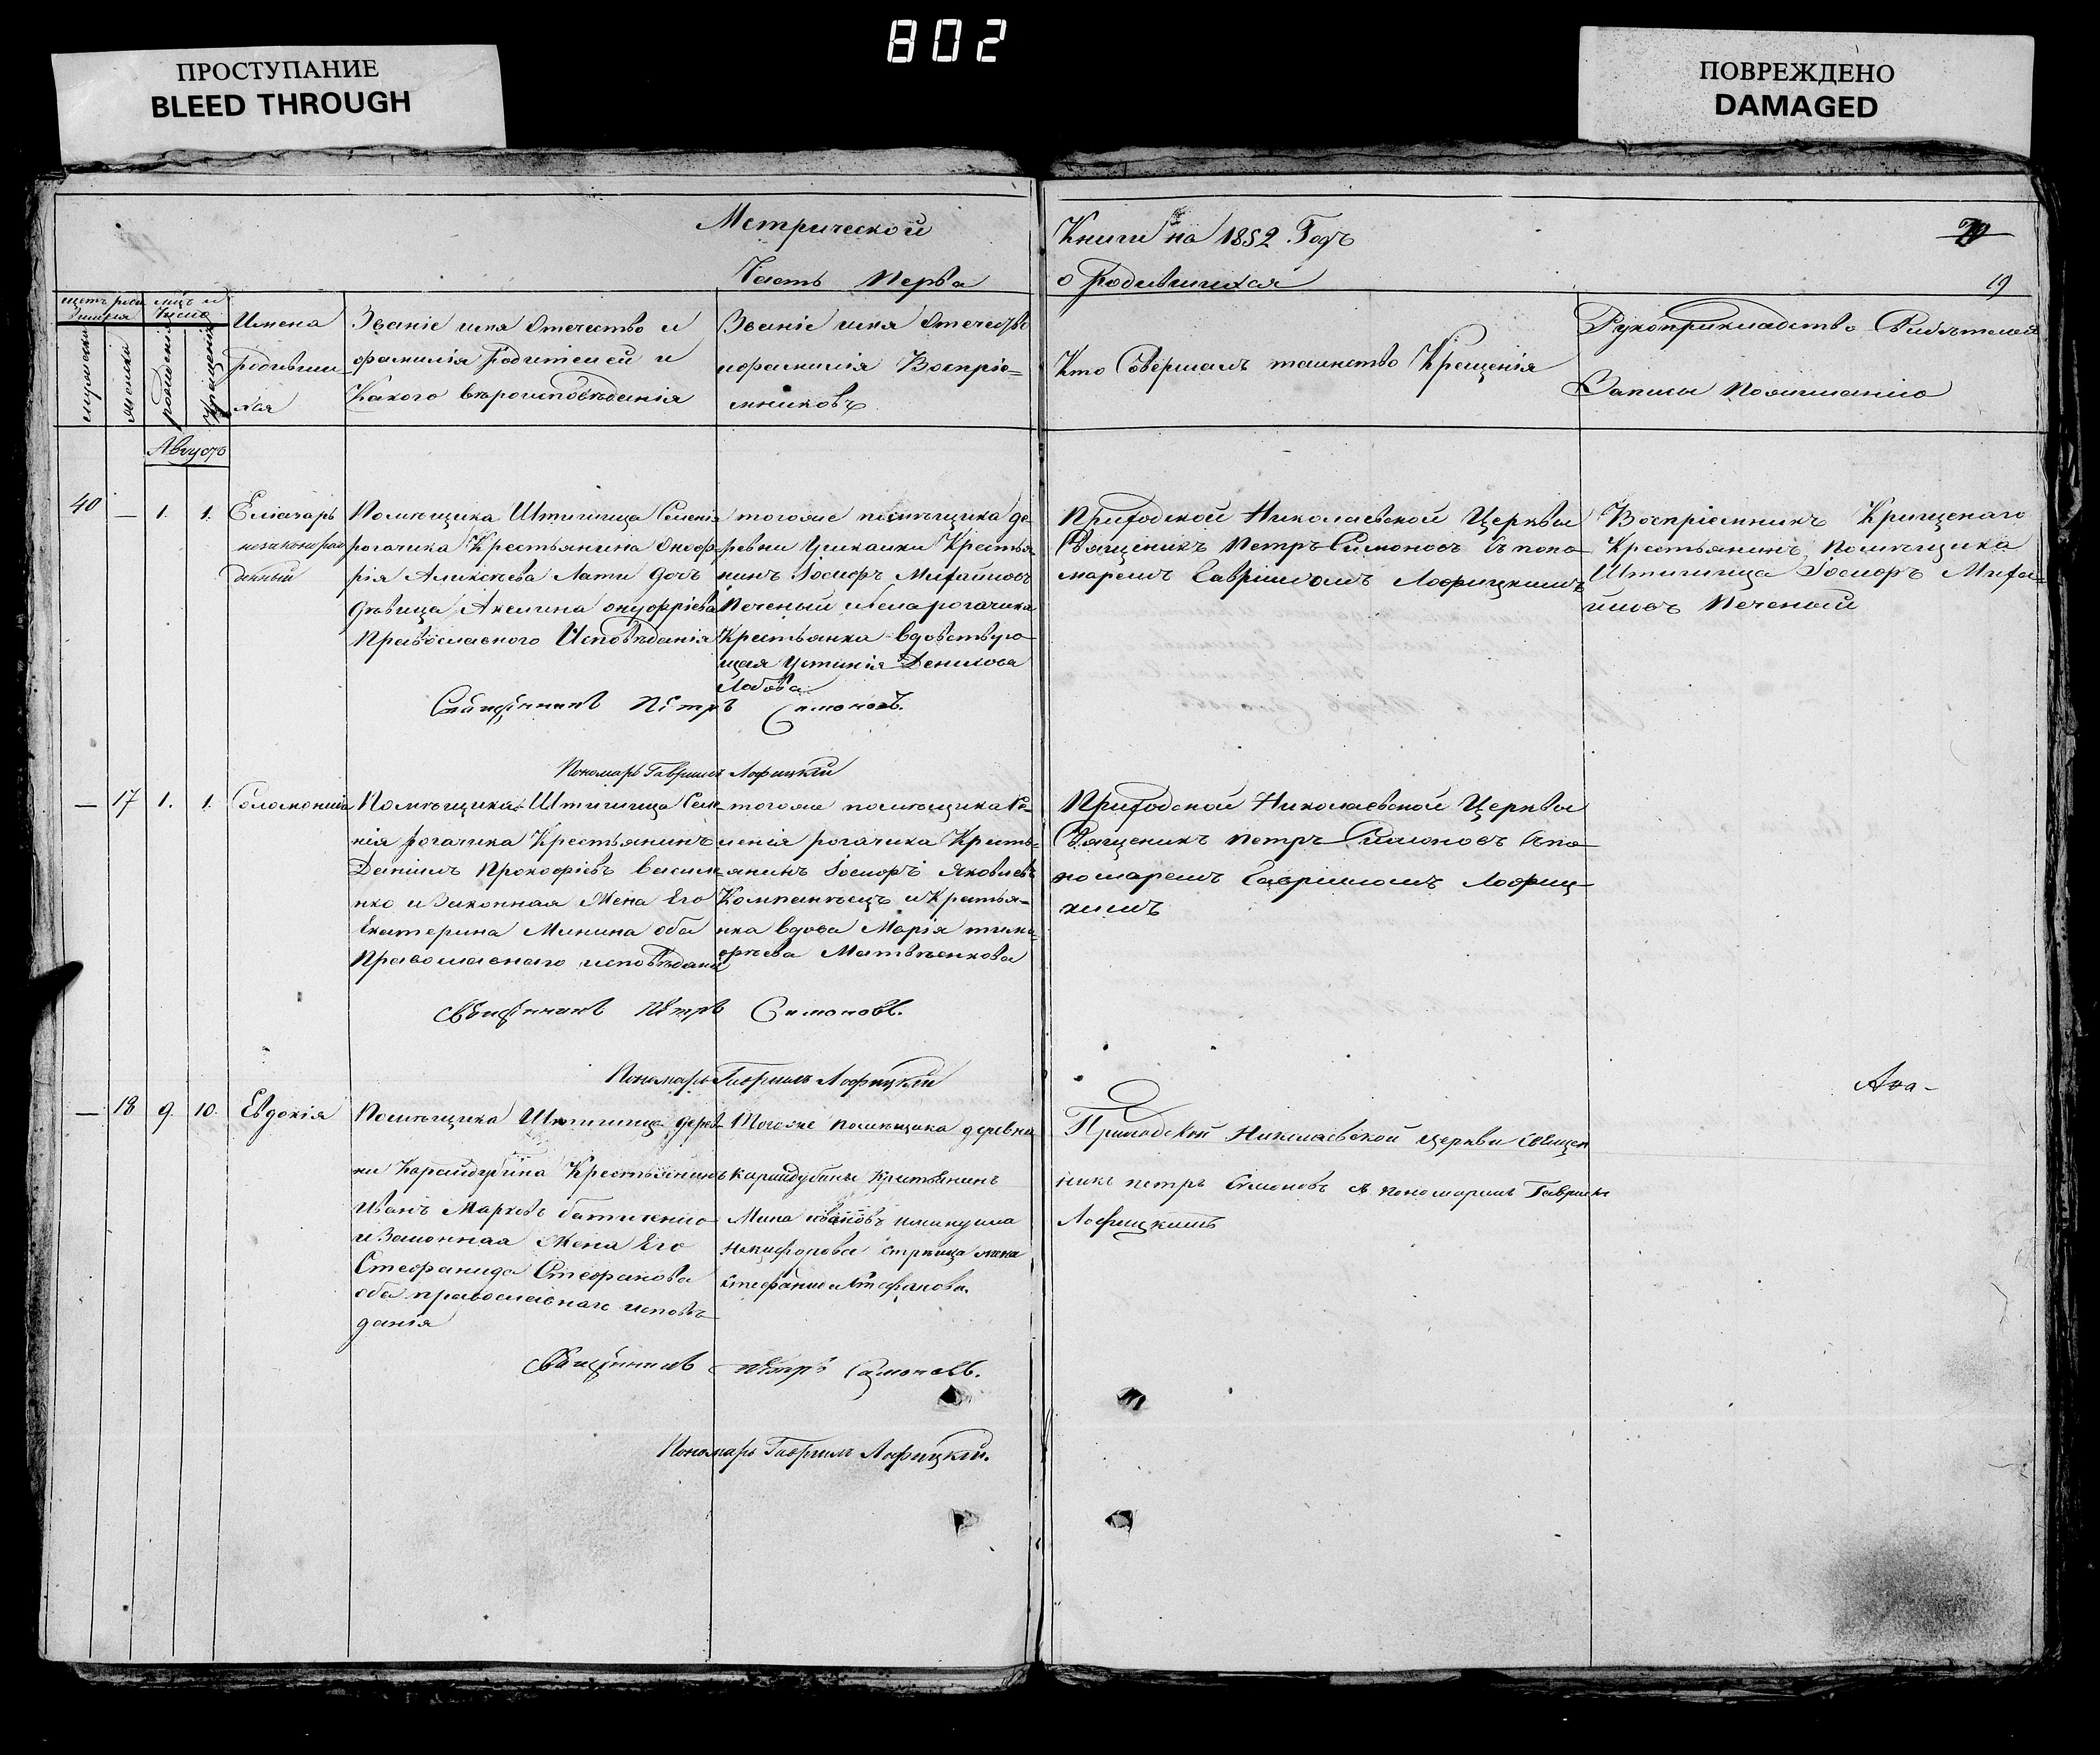 802
ПРОСТУПАНИЕ
BLEED THROUGH
ПОВРЕЖДЕНО
DAMAGED
Метрической
Книги на 1852 Годъ
Часть Перва
о Родившихся
19
мужеска
женска
рожденія
крещенія
Имена
Родивши
хся
Званіе имя Отечество и
фамилія Родителей и
Какого вѣроисповѣданія
Званіе имя Отечество
ифамилія Воспріе=
мниковъ
Кто Совершалъ таинство Крещенія
Рукоприкладство Свидѣтелей
Записи По
Августъ
40
—
1.
1.
Елиазаръ
незаконорож
денный
Помѣщика Штиглица Селенія
рогачика Крестьянина Онофр
рія Аликсѣева Лати Дочь
дѣвица Акелина онуфріева
Православного Исповѣданія
тогоже помѣщика де
ревни Ушкалки Крестья
нинъ Іосифъ Михайловъ
Печеный ибеларогачика
Крестьянка вдовствую
щая Устинія Денисова
Лобова
Приходской Николаевской Церквы
Священикъ Петръ Симоновъ съ поно
маремъ Гавріиломъ Лофицкимъ
Воспріемникъ Крищенаго
Крестьянинъ Помѣщика
Штиглица Іосифъ Миха=
йловъ Печеный
Священникъ Петръ Симоновъ.
Пономарь Гавриилъ Лофицкій
—
17
1.
1.
Соломонија
Помѣщика Штиглица Селе
нія рогачика Крестьянинъ
Даніилъ Прокофіевъ василе
нко иЗаконная Жена Его
Екатерина Минина оба
Православнаго исповѣдания
тогоже помѣщика Се=
ленія рогачика Кресть=
янинъ Іосифъ Яковлевъ
Компанѣецъ иКрестья=
нка вдова Марія тимо
фѣева Матвѣенкова
Приходской Николаевской Церквы
Священикъ Петръ Симоновъ Спо
номаремъ Гавріиломъ Лофиц
кимъ
Священникъ Петръ Симоновъ.
Пономарь Гавриилъ Лофицкій
Ава-
—
18
9.
10.
Евдокія
Помѣщика Штиглица дерев
ни Карайдубина Крестьянинъ
Иванъ Марковъ батиенко
иЗаконная Жена Его
Стефанида Стефанова
оба православнаго исповѣ
данія
Тогоже помѣщика деревни
карайдубины Крестьянинъ
Мина ивановъ
никифорова жена
Стефанова.
Приходской Николаевской Церкви Священ
никъ петръ Симоновъ съ пономаремъ Гавриил
Лофицкимъ
Священникъ Петръ Симоновъ.
Пономарь Гавриилъ Лофицкій.